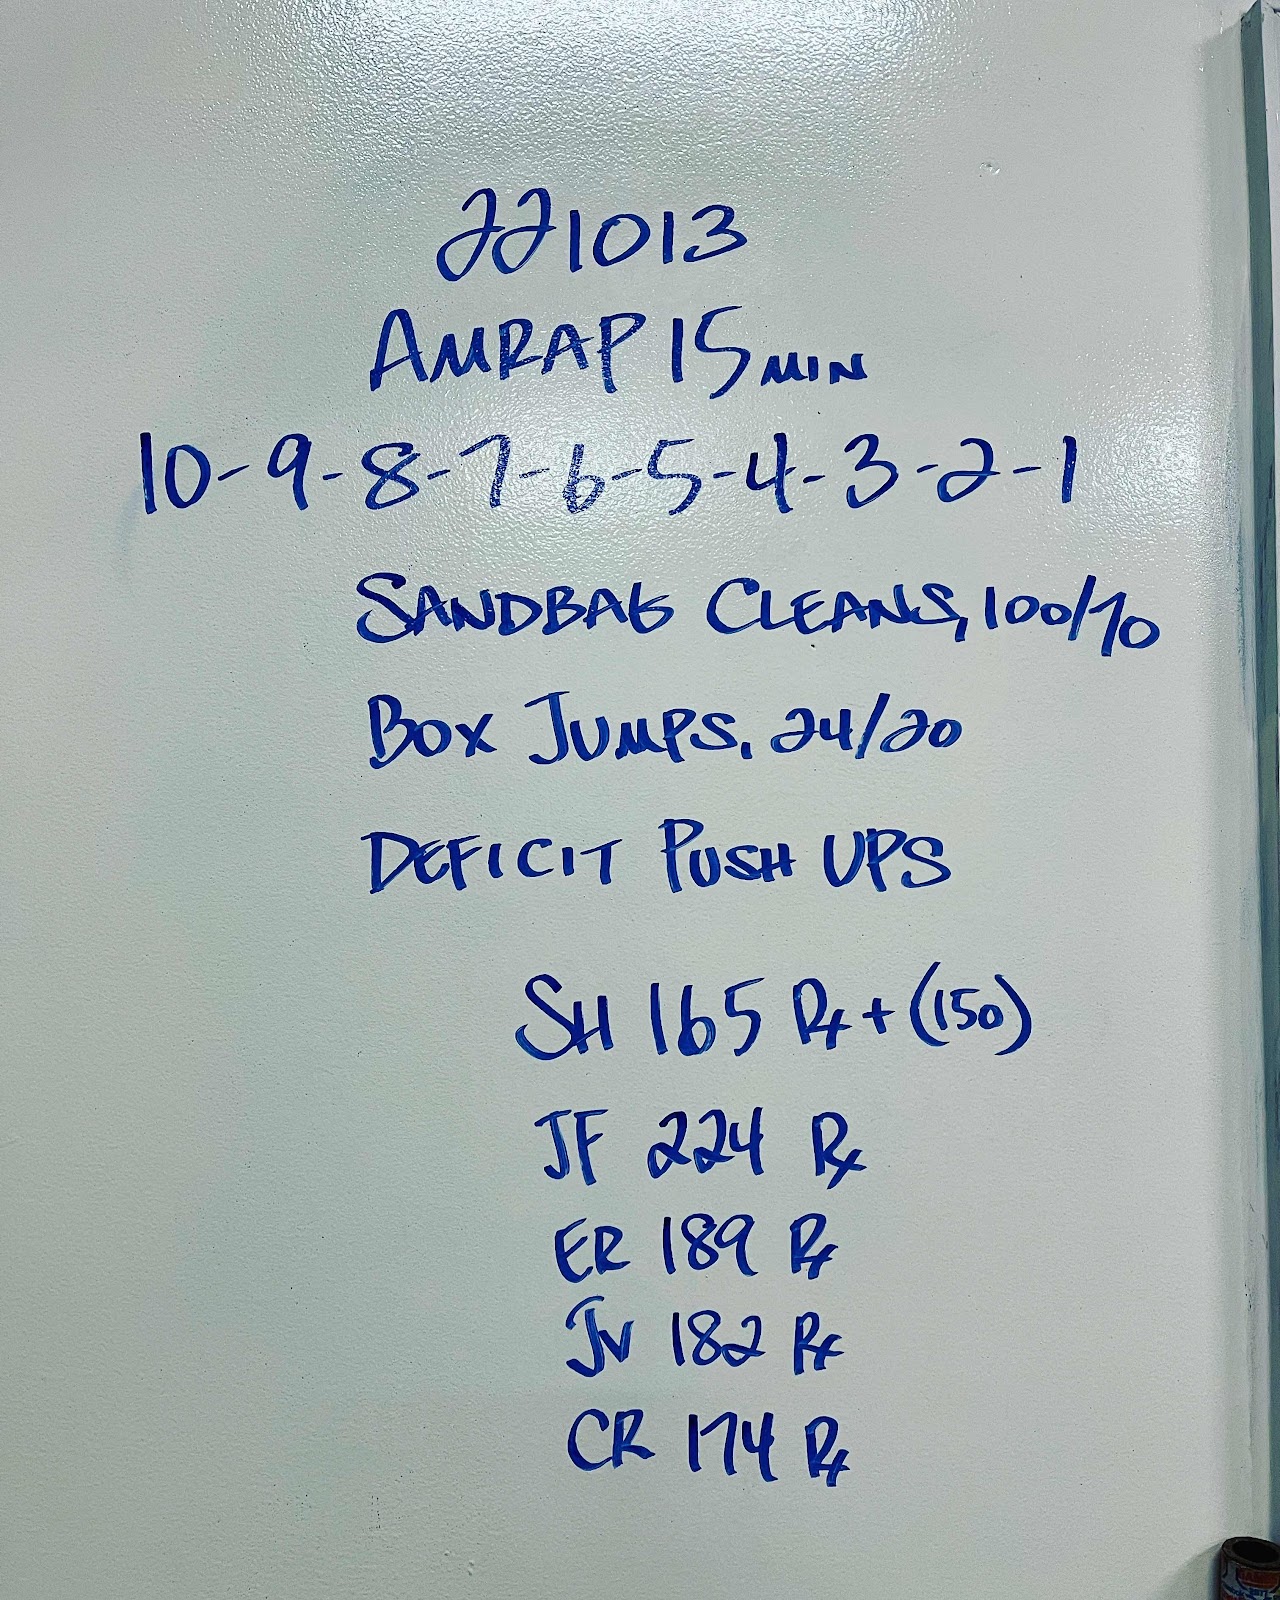 221013
AMRAP 15 MIN
10-9-8-7-6-5-4-3-2-1
SANDBAG CLEANS, 100/70
BOX JUMPS, 24/20
DEFICIT PUSH UPS
SH 165 Rx + (150)
JF 224 Rx
ER 189 Rx
JV 182 Rx
CR 174 Rx